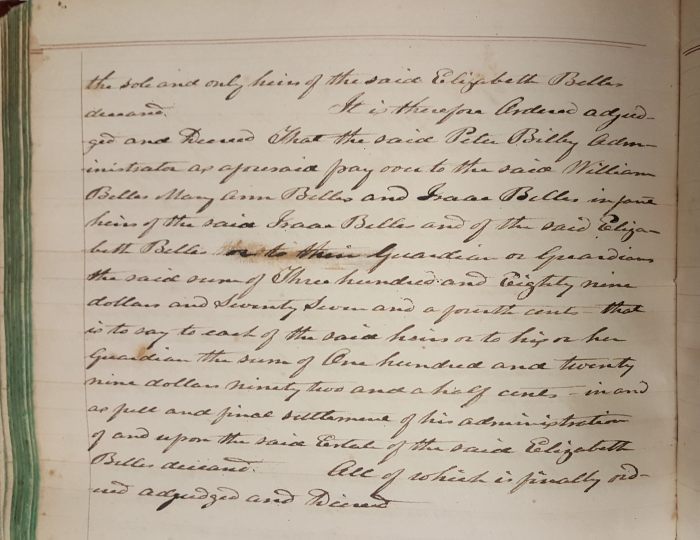 the sole and only heirs of the said Elizabeth Belles
deceased. It is therefore Ordered adjud-
ged and Decreed That the said Peter Billy Adm-
inistrator as aforesaid pay over to the said William
Belles Mary Ann Belles and Isaac Belles infant
heirs of the said Isaac Belles and of the said Eliza-
beth Belles or to their Guardian or Guardians
the said sum of Three hundred and Eighty nine
dollars and Seventy Seven and a fourth cents that
is to say to each of the said heirs or to his or her
Guardian the sum of One hundred and twenty
nine dollars ninety two and a half cents - in and
as full and final settlement of his administration
of and upon the said Estate of the said Elizabeth
Belles deceased. All of which is finally ord-
ered adjudged and Decreed